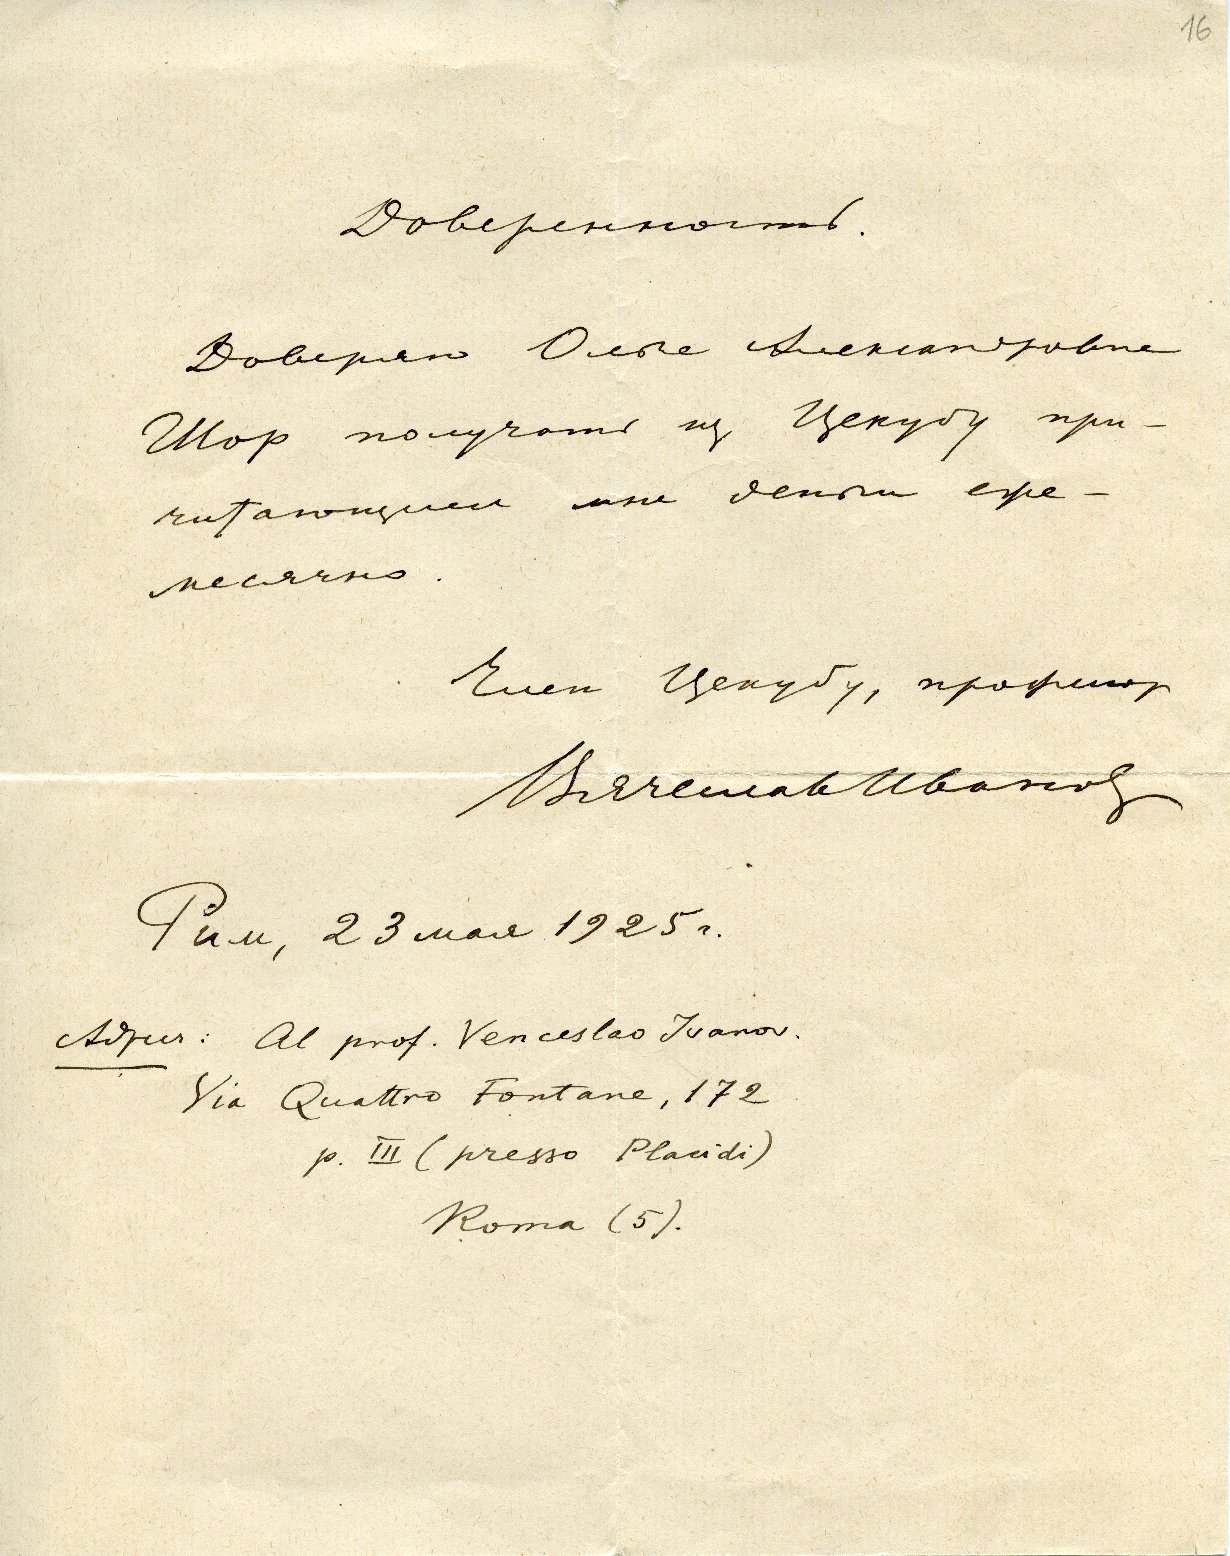 16
Доверенность.
Доверяю Ольге Александровне
Шор получать из Цекубу при-
читающиеся мне деньги еже-
месячно.
Член Цекубу, профессор
Вячеслав Иванов
Рим, 23 мая 1925 г.
Адрес: Al prof. Venceslao Ivanov.
Via Quattro Fontane, 172
p. III (presso Placidi)
Roma (5).